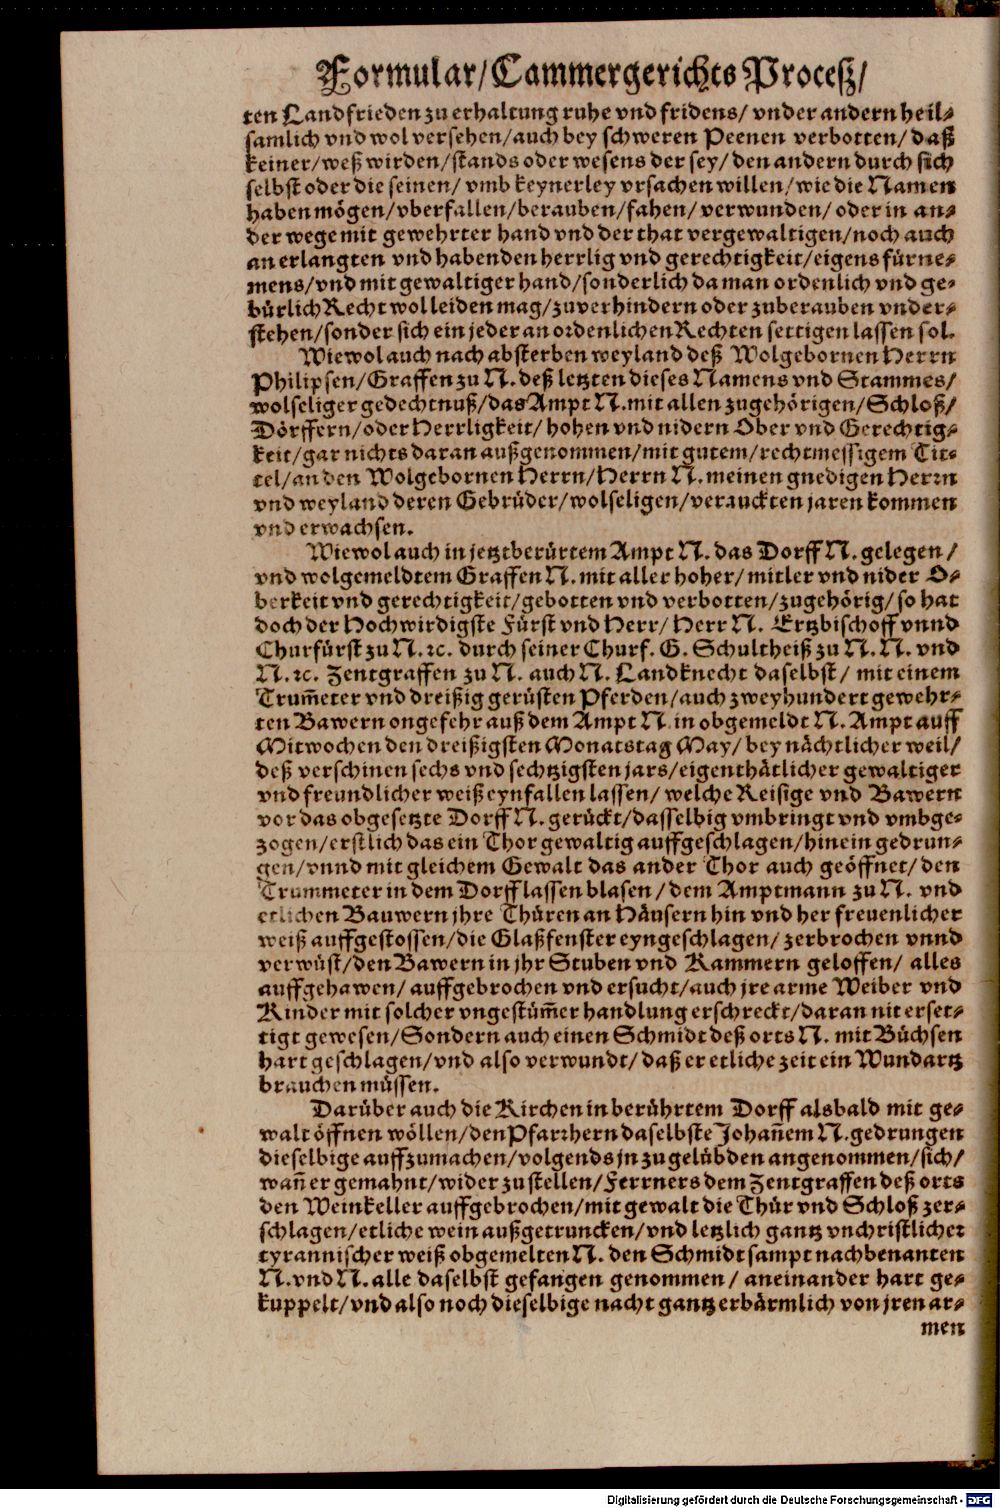 Formular/Cammergerichts Proceß/
ten Landfrieden zu erhaltung ruhe vnd fridens/ vnder andern heil⸗
samlich vnd wol versehen/auch bey schweren Peenen verbotten/ daß
keiner/weß wirden/stands oder wesens der sey/den andern durch sich
selbst oder die seinen/ vmb keynerley vrsachen willen/wie die Namen
haben mögen/vberfallen/berauben/fahen/ verwunden/ oder in an⸗
der wege mit gewehrter hand vnd der that vergewaltigen/noch auch
an erlangten vnd habenden herrlig vnd gerechtigkeit/eigens fürne⸗
mens/vnd mit gewaltiger hand/sonderlich da man ordenlich vnd ge⸗
bürlich Recht wol leiden mag/zuverhindern oder zuberauben vnder⸗
stehen/sonder sich ein jeder an ordenlichen Rechten settigen lassen sol.
Wiewol auch nach absterben weyland deß Wolgebornen Herrn
Philipsen/Graffen zu N. deß letzten dieses Namens vnd Stammes/
wolseliger gedechtnuß/das Ampt N. mit allen zugehörigen/Schloß/
Dörffern/oder Herrligkeit/ hohen vnd nidern Ober vnd Gerechtig⸗
keit/gar nichts daran außgenommen/mit gutem/rechtmessigem Tit⸗
tel/an den Wolgebornen Herrn/Herrn N. meinen gnedigen Herrn
vnd weyland deren Gebrüder/wolseligen/verauckten jaren kommen
vnd erwachsen.
Wiewol auch in jetztberürtem Ampt N. das Dorff N. gelegen/
vnd wolgemeldtem Graffen N. mit aller hoher/mitler vnd nider O⸗
berkeit vnd gerechtigkeit/gebotten vnd verbotten/zugehörig/so hat
doch der Hochwirdigste Fürst vnd Herr/ Herr N. Ertzbischoff vnnd
Churfürst zu N. ꝛc. durch seiner Churf. G. Schultheiß zu N. N. vnd
N. ꝛc. Zentgraffen zu N. auch N. Landknecht daselbst/ mit einem
Trum̃eter vnd dreißig gerüsten Pferden/auch zweyhundert gewehr⸗
ten Bawern ongefehr auß dem Ampt N. in obgemeldt N. Ampt auff
Mitwochen den dreißigsten Monatstag May/ bey nächtlicher weil/
deß verschinen sechs vnd sechtzigsten jars/eigenthätlicher gewaltiger
vnd freundlicher weiß eynfallen lassen/ welche Reisige vnd Bawern
vor das obgesetzte Dorff N. gerückt/dasselbig vmbringt vnd vmbge⸗
zogen/erstlich das ein Thor gewaltig auffgeschlagen/hinein gedrun⸗
gen/vnnd mit gleichem Gewalt das ander Thor auch geöffnet/den
Trummeter in dem Dorff lassen blasen/dem Amptmann zu N. vnd
etlichen Bauwern jhre Thüren an Häusern hin vnd her freuenlicher
weiß auffgestossen/die Glaßfenster eyngeschlagen/ zerbrochen vnnd
verwüst/den Bawern in jhr Stuben vnd Kammern geloffen/ alles
auffgehawen/ auffgebrochen vnd ersucht/auch jre arme Weiber vnd
Kinder mit solcher vngestüm̃er handlung erschreckt/daran nit erset⸗
tigt gewesen/Sondern auch einen Schmidt deß orts N. mit Büchsen
hart geschlagen/vnd also verwundt/daß er etliche zeit ein Wundartz
brauchen müssen.
Darüber auch die Kirchen in berührtem Dorff alsbald mit ge⸗
walt öffnen wöllen/den Pfarrhern daselbste Johañem N. gedrungen
dieselbige auffzumachen/volgends jn zu gelübden angenommen/sich/
wañ er gemahnt/wider zu stellen/Ferrners dem Zentgraffen deß orts
den Weinkeller auffgebrochen/mit gewalt die Thür vnd Schloß zer⸗
schlagen/etliche wein außgetruncken/vnd letzlich gantz vnchristlicher
tyrannischer weiß obgemelten N. den Schmidt sampt nachbenanten
N. vnd N. alle daselbst gefangen genommen/ aneinander hart ge⸗
kuppelt/vnd also noch dieselbige nacht gantz erbärmlich von jren ar⸗
men
Digitalisierung gefördert durch die Deutsche Forschungsgemeinschaft - DFG